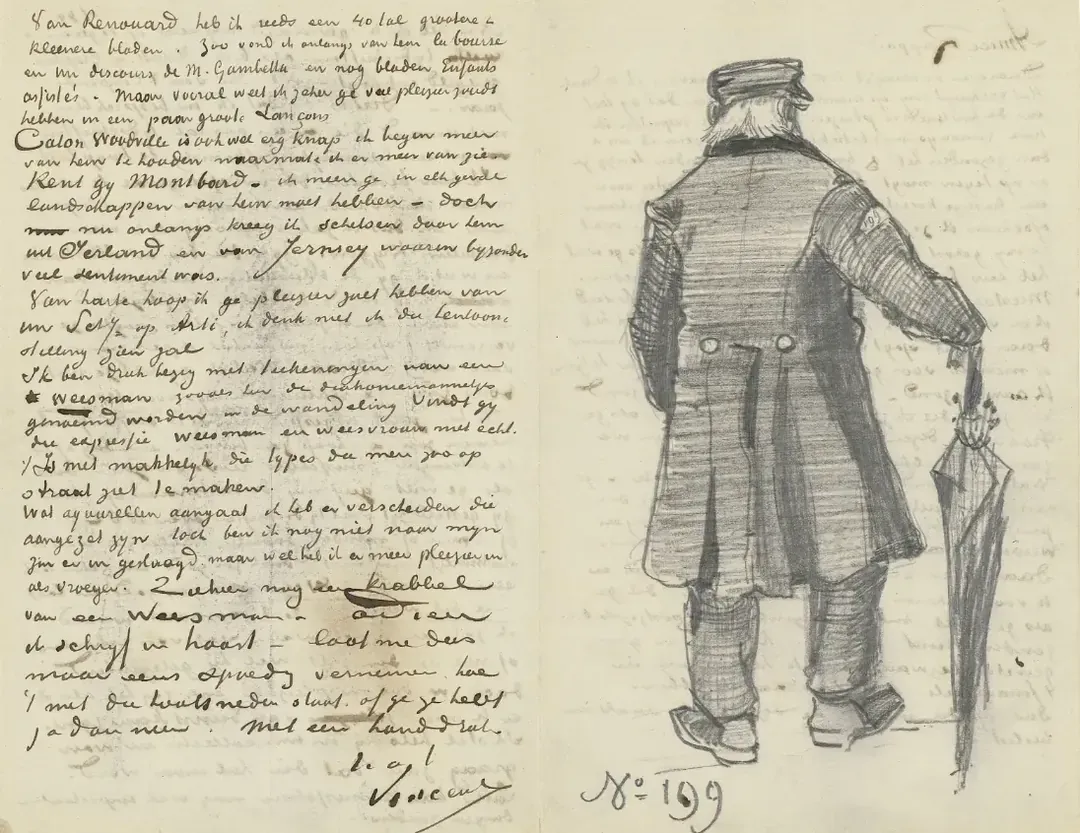 Van Renouard heb ik reeds een 40 tal grootere &
kleenere bladen. Zoo vond ik onlangs van hem la bourse
en un discours de M. Gambetta en nog bladen Enfants
assistés – Maar vooral weet ik zeker ge veel pleizier zoudt
hebben in een paar groote Lançons
Caton Woodville is ook wel erg knap ik begin meer
van hem te houden naarmate ik er meer van zie –
Kent gy Montbard – ik meen ge in elk geval
landschappen van hem moet hebben – doch
nu onlangs kreeg ik schetsen door hem
uit Ierland en van Jersey waarin byzonder
veel sentiment was.
Van harte hoop ik ge pleizier zult hebben van
uw Schy op Arti ik denk niet ik die tentoon-
stelling zien zal
Ik ben druk bezig met teekeningen van een
weesman zooals hier de diakoniemannetjes
genoemd worden in de wandeling Vindt gy
die expressie weesman en weesvrouw niet echt.
't Is niet makkelyk die types die men zoo op
straat ziet te maken.
Wat aquarellen aangaat ik heb er verscheiden die
aangezet zyn toch ben ik nog niet naar myn
zin er in geslaagd. maar wel heb ik er meer pleizier in
als vroeger. Ziehier nog een krabbel
van een weesman – adieu
ik schryf in haast – laat me dus
maar eens spoedig vernemen hoe
't met die houtsneden staat. of ge ze hebt
ja dan neen. Met een handdruk
t. à t.
Vincent
199
No 199